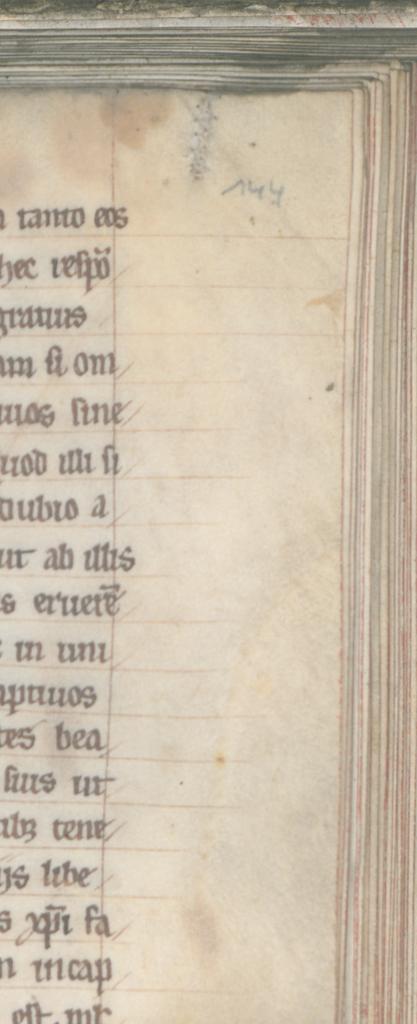 144
tanto eos
hec respo̅
gratuus
am si om
uuos sine
quod illi si
dubio a
ut ab illis
s eruere̅
in uni
aptiuos
tes bea
suis ut
ilbꝫ tene
ijs libe
s xp̅i fa
n incap
est